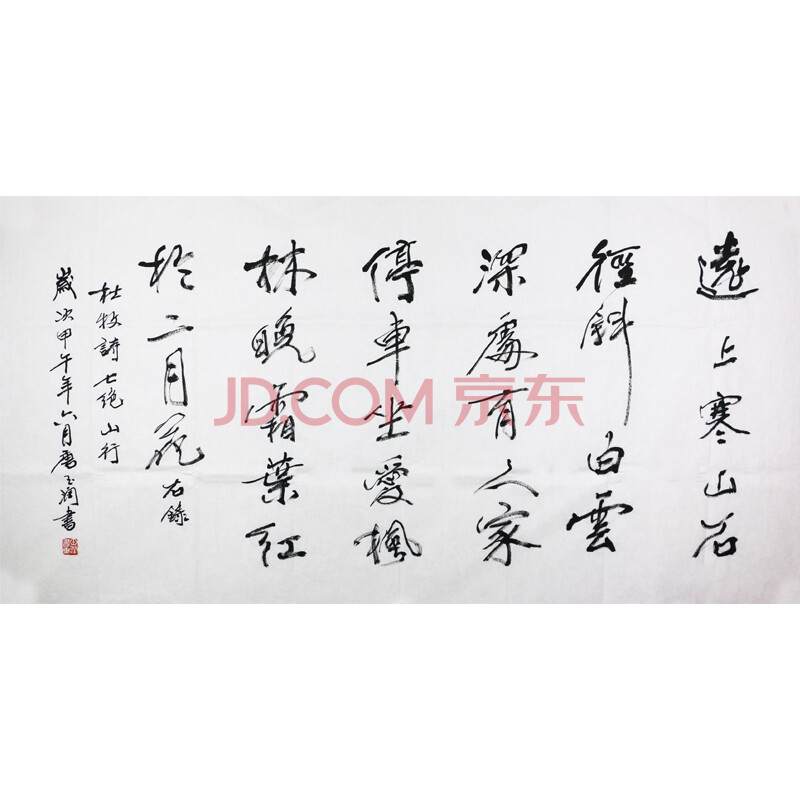 遠上寒山石
徑斜白雲
深處有人家
停車坐愛楓
林晚霜葉紅
於二月花
右錄
杜牧詩七絕山行
歲次甲午年六月唐玉潤書
JD.COM 京东